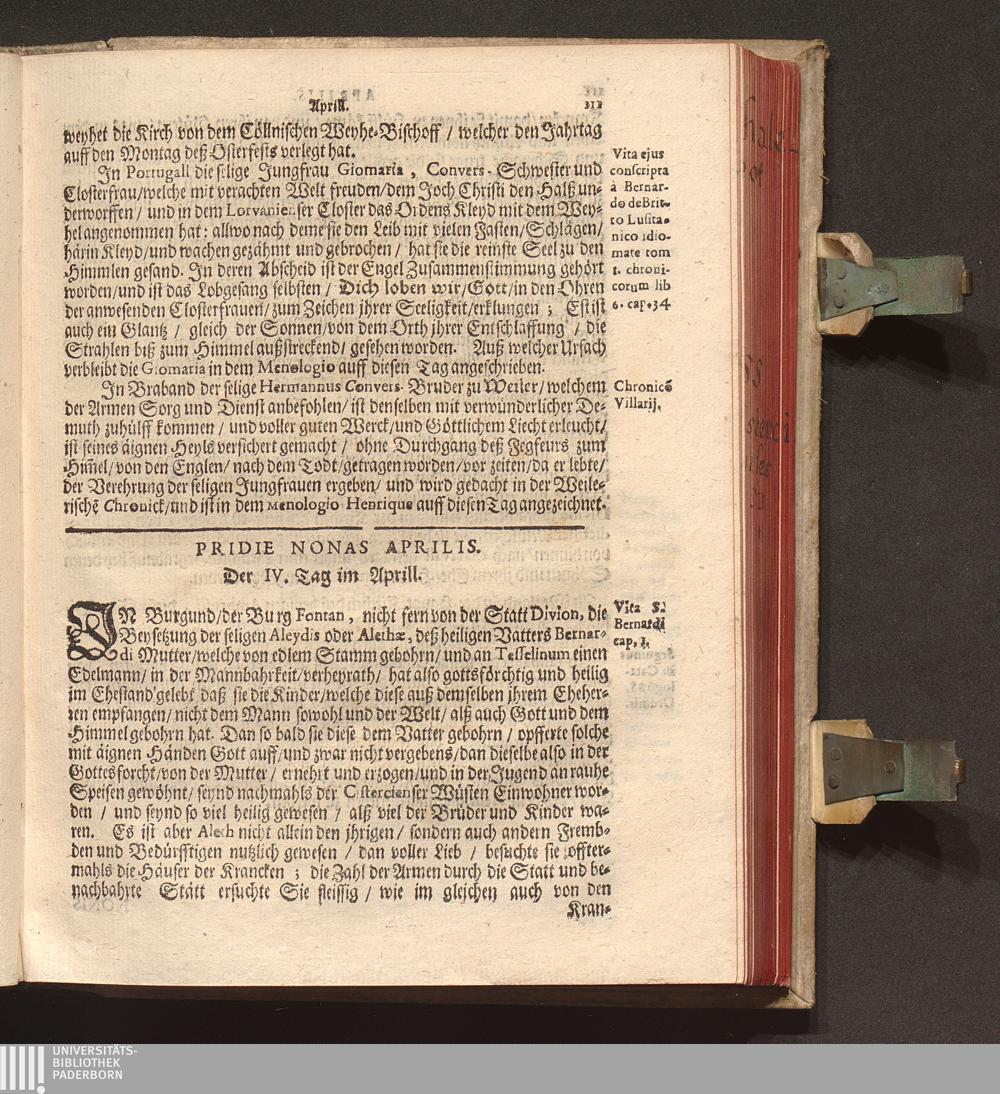 Aprill.
111
weyhet die Kirch von dem Cöllnischen Weyhe-Bischoff / welcher den Jahrtag
auff den Montag deß Osterfests verlegt hat.
In Portugall die selige Jungfrau Giomaria , Convers- Schwester und
Closterfrau/welche mit verachten Welt freuden/dem Joch Christi den Halß un-
derworffen / und in dem Lorvanienser Closter das Ordens Kleyd mit dem Wey-
hel angenommen hat: allwo nach deme sie den Leib mit vielen Fasten/Schlägen/
härin Kleyd/und wachen gezähmt und gebrochen / hat sie die reinste Seel zu den
Himmlen gesand. In deren Abscheid ist der Engel Zusammenstimmung gehört
worden/und ist das Lobgesang selbsten / Dich loben wir/Gott/in den Ohren
der anwesenden Closterfrauen/zum Zeichen jhrer Seeligkeit/erklungen ; Es ist
auch ein Glantz / gleich der Sonnen/von dem Orth jhrer Entschlaffung / die
Strahlen biß zum Himmel außstreckend/ gesehen worden. Auß welcher Ursach
verbleibt die Giomaria in dem Menologio auff diesen Tag angeschrieben.
Vita ejus
conscripta
à Bernar-
do de Brit-
to Lusita-
nico idio-
mate tom
1. chroni-
corum lib
6. cap. 34
In Braband der selige Hermannus Convers- Bruder zu Weiler/welchem
der Armen Sorg und Dienst anbefohlen/ ist denselben mit verwünderlicher De-
muth zuhülff kommen / und voller guten Werck/und Göttlichem Liecht erleucht/
ist seines äignen Heyls versichert gemacht / ohne Durchgang deß Fegfeurs zum
Him̄el/von den Englen/nach dem Todt/getragen worden/vor zeiten/da er lebte/
der Verehrung der seligen Jungfrauen ergeben/ und wird gedacht in der Weile-
rischē Chronick/und ist in dem Menologio Henrique auff diesen Tag angezeichnet.
Chronicō
Villarij.
PRIDIE NONAS APRILIS.
Der IV. Tag im Aprill.
IN Burgund/der Burg Fontan , nicht fern von der Statt Divion, die
Beysetzung der seligen Aleydis oder Alethæ, deß heiligen Vatters Bernar-
di Mutter/welche von edlem Stamm gebohrn/und an Tesselinum einen
Edelmann/ in der Mannbahrkeit/verheyrath/ hat also gottsförchtig und heilig
im Ehestand gelebt daß sie die Kinder/welche diese auß demselben jhrem Eheher-
ren empfangen/nicht dem Mann sowohl und der Welt/ alß auch Gott und dem
Himmel gebohrn hat. Dan so bald sie diese dem Vatter gebohrn / opfferte solche
mit äignen Händen Gott auff/und zwar nicht vergebens/dan dieselbe also in der
Gottesforcht/von der Mutter / ernehrt und erzogen/und in der Jugend an rauhe
Speisen gewöhnt/ seynd nachmahls der Cistercienser Wüsten Einwohner wor-
den / und seynd so viel heilig gewesen / alß viel der Brüder und Kinder wa-
ren. Es ist aber Aleth nicht allein den jhrigen / sondern auch andern Fremb-
den und Bedürfftigen nutzlich gewesen / dan voller Lieb / besuchte sie offter-
mahls die Häuser der Krancken ; die Zahl der Armen durch die Statt und be-
nachbahrte Stätt ersuchte Sie fleissig / wie im gleichen auch von den
Kran-
Vita S.
Bernardi
cap. 1.
UNIVERSITÄTS-
BIBLIOTHEK
PADERBORN